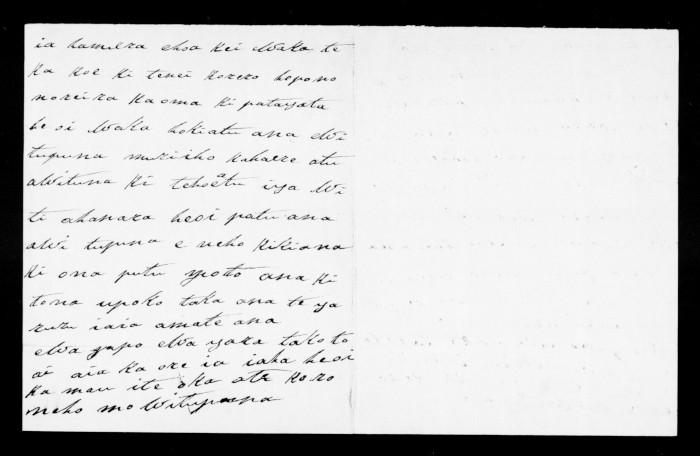 ia hamera ehoa kei Waka te
ka koe ki tenei korero hopono
noreira ka oma ki patayata
he oi Waka hokiatu ana Wi
tupuna muriiho kahaere atu
aWituna ki tehoatu iya Wi
ti ahanara heoi patu ana
aWi tupuna e neho kikiana
ki ona putu ypoto ana ki
tona upoko taka ana te ya
ruru iaia amate ana
elva yapo elva yara takoto
ai aia ka ore ia iaha heoi
ka mau ite oka ate koro
neho mo Witupuna